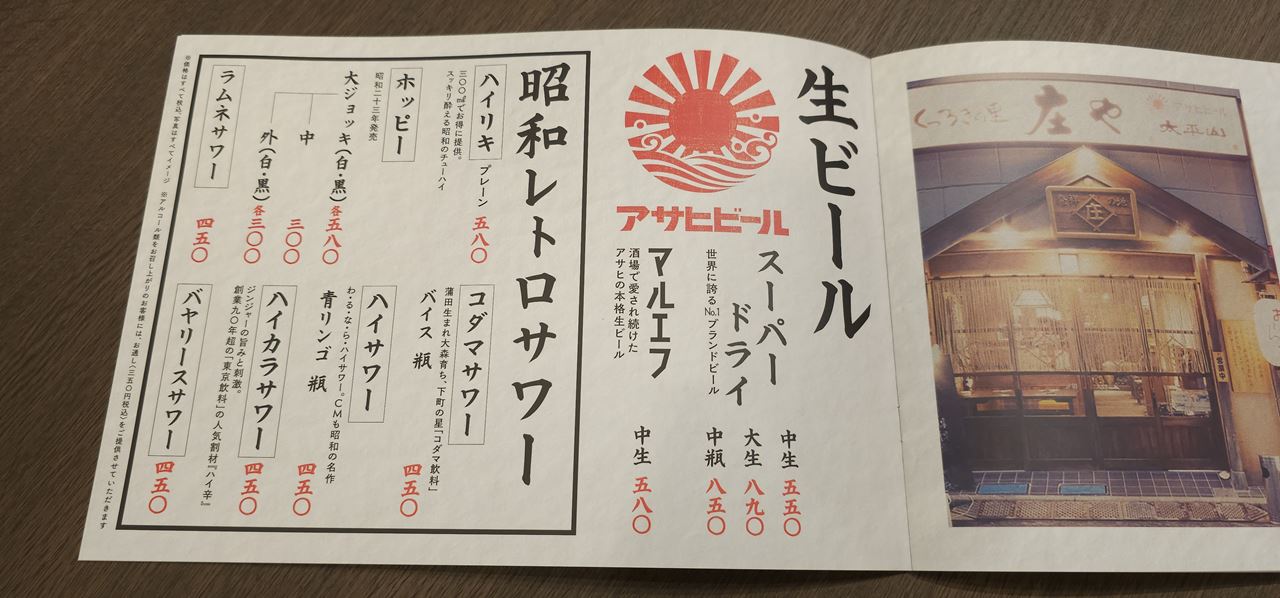 くつろぎの里
庄や
アサヒビール
太平山
庄
営業中
生ビール
アサヒビール
スーパー
ドライ
世界に誇るNo.1ブランドビール
中生 五五〇
大生 八九〇
中瓶 八五〇
マルエフ
酒場で愛され続けた
アサヒの本格生ビール
中生 五八〇
昭和レトロサワー
ハイリキ プレーン 五八〇
三〇〇mlでお得に提供。
スッキリ酔える昭和のチューハイ
ホッピー
昭和二十三年発売
大ジョッキ(白・黒) 各五八〇
中 三〇〇
外(白・黒) 各三〇〇
ラムネサワー 四五〇
コダマサワー
蒲田生まれ大森育ち、下町の星「コダマ飲料」
バイス 瓶 四五〇
ハイサワー
わ・る・な・ら・ハイサワー。CMも昭和の名作
青リンゴ 瓶 四五〇
ハイカラサワー 四五〇
ジンジャーの旨みと刺激。
創業九〇年超の「東京飲料」の人気割材『ハイ辛』
バヤリースサワー 四五〇
※価格はすべて税込、写真はすべてイメージ ※アルコール類をお召し上がりのお客様には、お通し(三五〇円税込)をご提供させていただきます